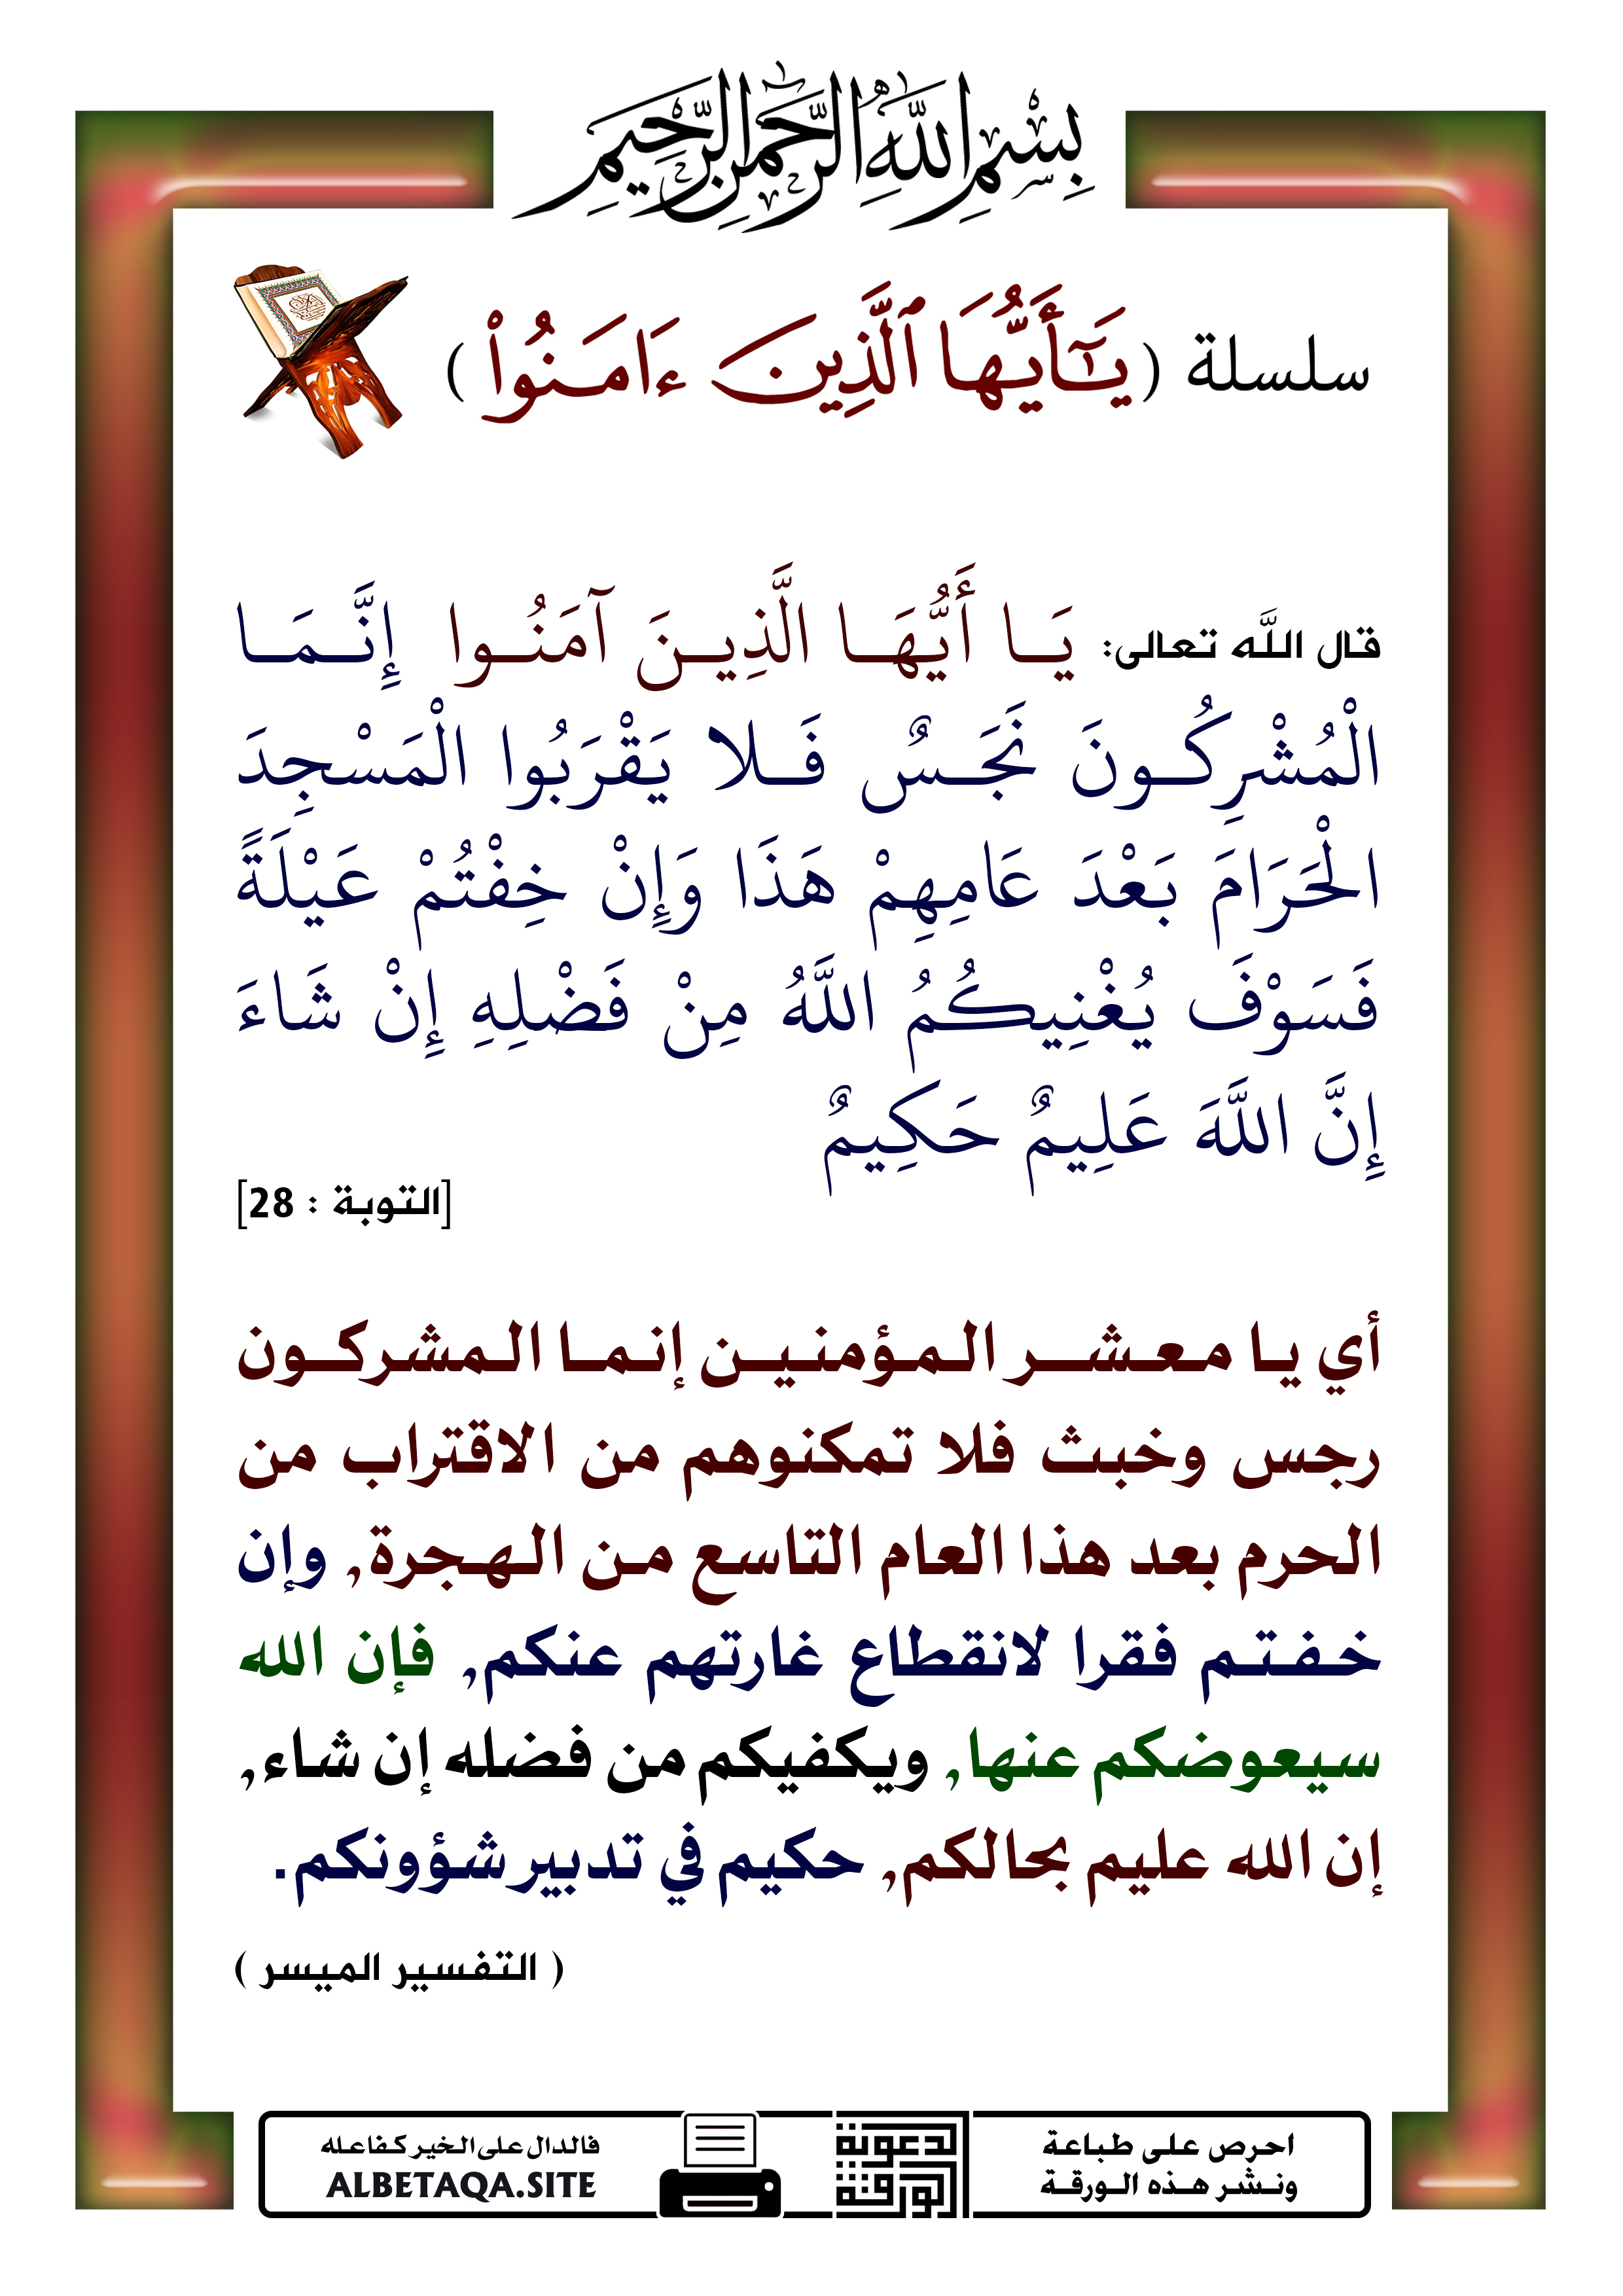 بِسْمِ اللَّهِ الرَّحْمَٰنِ الرَّحِيمِ
سلسلة (يَـٰٓأَيُّهَا ٱلَّذِينَ ءَامَنُوا۟)
قال اللَّه تعالى: يَا أَيُّهَا الَّذِينَ آمَنُوا إِنَّمَا
الْمُشْرِكُونَ نَجَسٌ فَلا يَقْرَبُوا الْمَسْجِدَ
الْحَرَامَ بَعْدَ عَامِهِمْ هَذَا وَإِنْ خِفْتُمْ عَيْلَةً
فَسَوْفَ يُغْنِيكُمُ اللَّهُ مِنْ فَضْلِهِ إِنْ شَاءَ
إِنَّ اللَّهَ عَلِيمٌ حَكِيمٌ
[التوبة : 28]
أي يا معشر المؤمنين إنما المشركون
رجس وخبث فلا تمكنوهم من الاقتراب من
الحرم بعد هذا العام التاسع من الهجرة, وإن
خفتم فقرا لانقطاع غارتهم عنكم, فإن الله
سيعوضكم عنها, ويكفيكم من فضله إن شاء,
إن الله عليم بحالكم, حكيم في تدبير شؤونكم.
( التفسير الميسر )
احرص على طباعة
ونشر هذه الورقة
الدعوية
الورقة
فالدال على الخير كفاعله
ALBETAQA.SITE